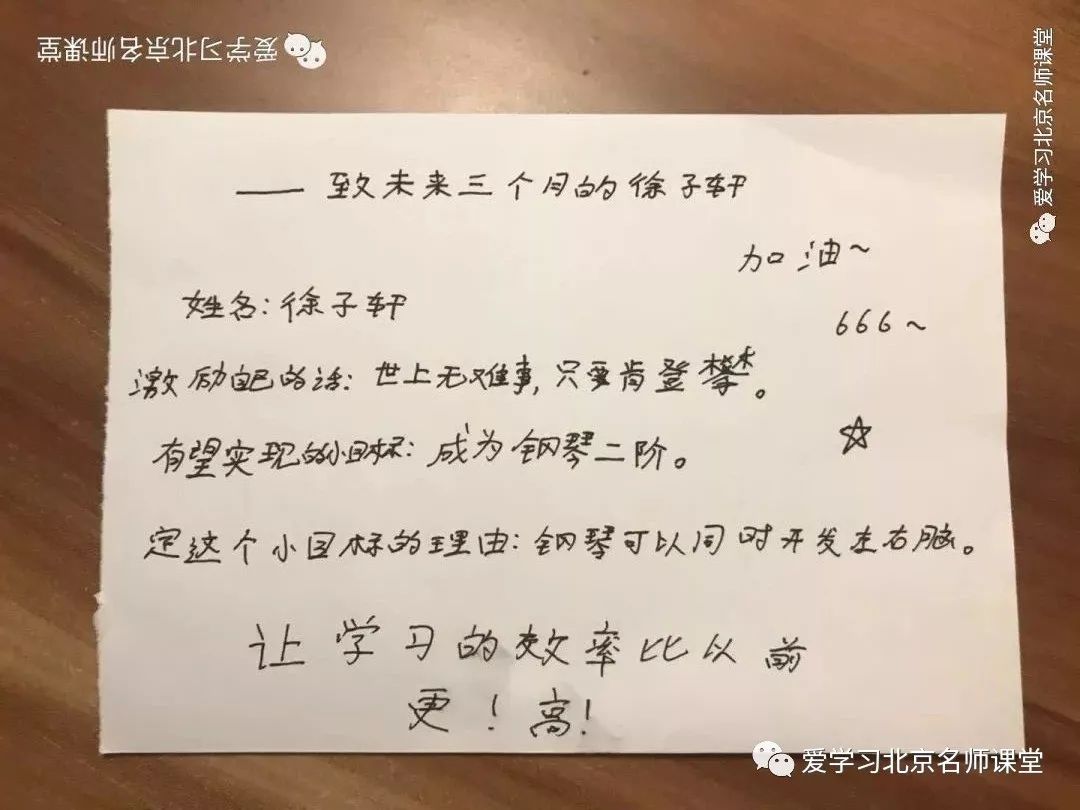 爱学习北京名师课堂
爱学习北京名师课堂
—— 致未来三个月的徐子轩
加油~
姓名:徐子轩
666~
激励自己的话:世上无难事,只要肯登攀。
有望实现的小目标:成为钢琴二阶。
定这个小目标的理由:钢琴可以同时开发左右脑。
让学习的效率比以前
更!高!
爱学习北京名师课堂